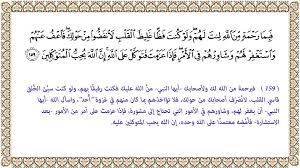 فَبِمَا رَحْمَةٍ مِّنَ اللَّهِ لِنتَ لَهُمْ وَلَوْ كُنتَ فَظًّا غَلِيظَ الْقَلْبِ لَانفَضُّوا مِنْ حَوْلِكَ فَاعْفُ عَنْهُمْ
وَاسْتَغْفِرْ لَهُمْ وَشَاوِرْهُمْ فِي الْأَمْرِ فَإِذَا عَزَمْتَ فَتَوَكَّلْ عَلَى اللَّهِ إِنَّ اللَّهَ يُحِبُّ الْمُتَوَكِّلِينَ ١٥٩
(١٥٩) فبرحمة من الله لك ولأصحابك -أيها النبي- منَّ الله عليك فكنت رفيقًا بهم، ولو كنت سيِّئ الخُلق
قاسي القلب، لانْصَرَفَ أصحابك من حولك، فلا تؤاخذهم بما كان منهم في غزوة "أُحد"، واسأل الله -أيها
النبي- أن يغفر لهم، وشاورهم في الأمور التي تحتاج إلى مشورة، فإذا عزمت على أمر من الأمور -بعد
الاستشارة- فأَمْضِه معتمدًا على الله وحده، إن الله يحب المتوكلين عليه.